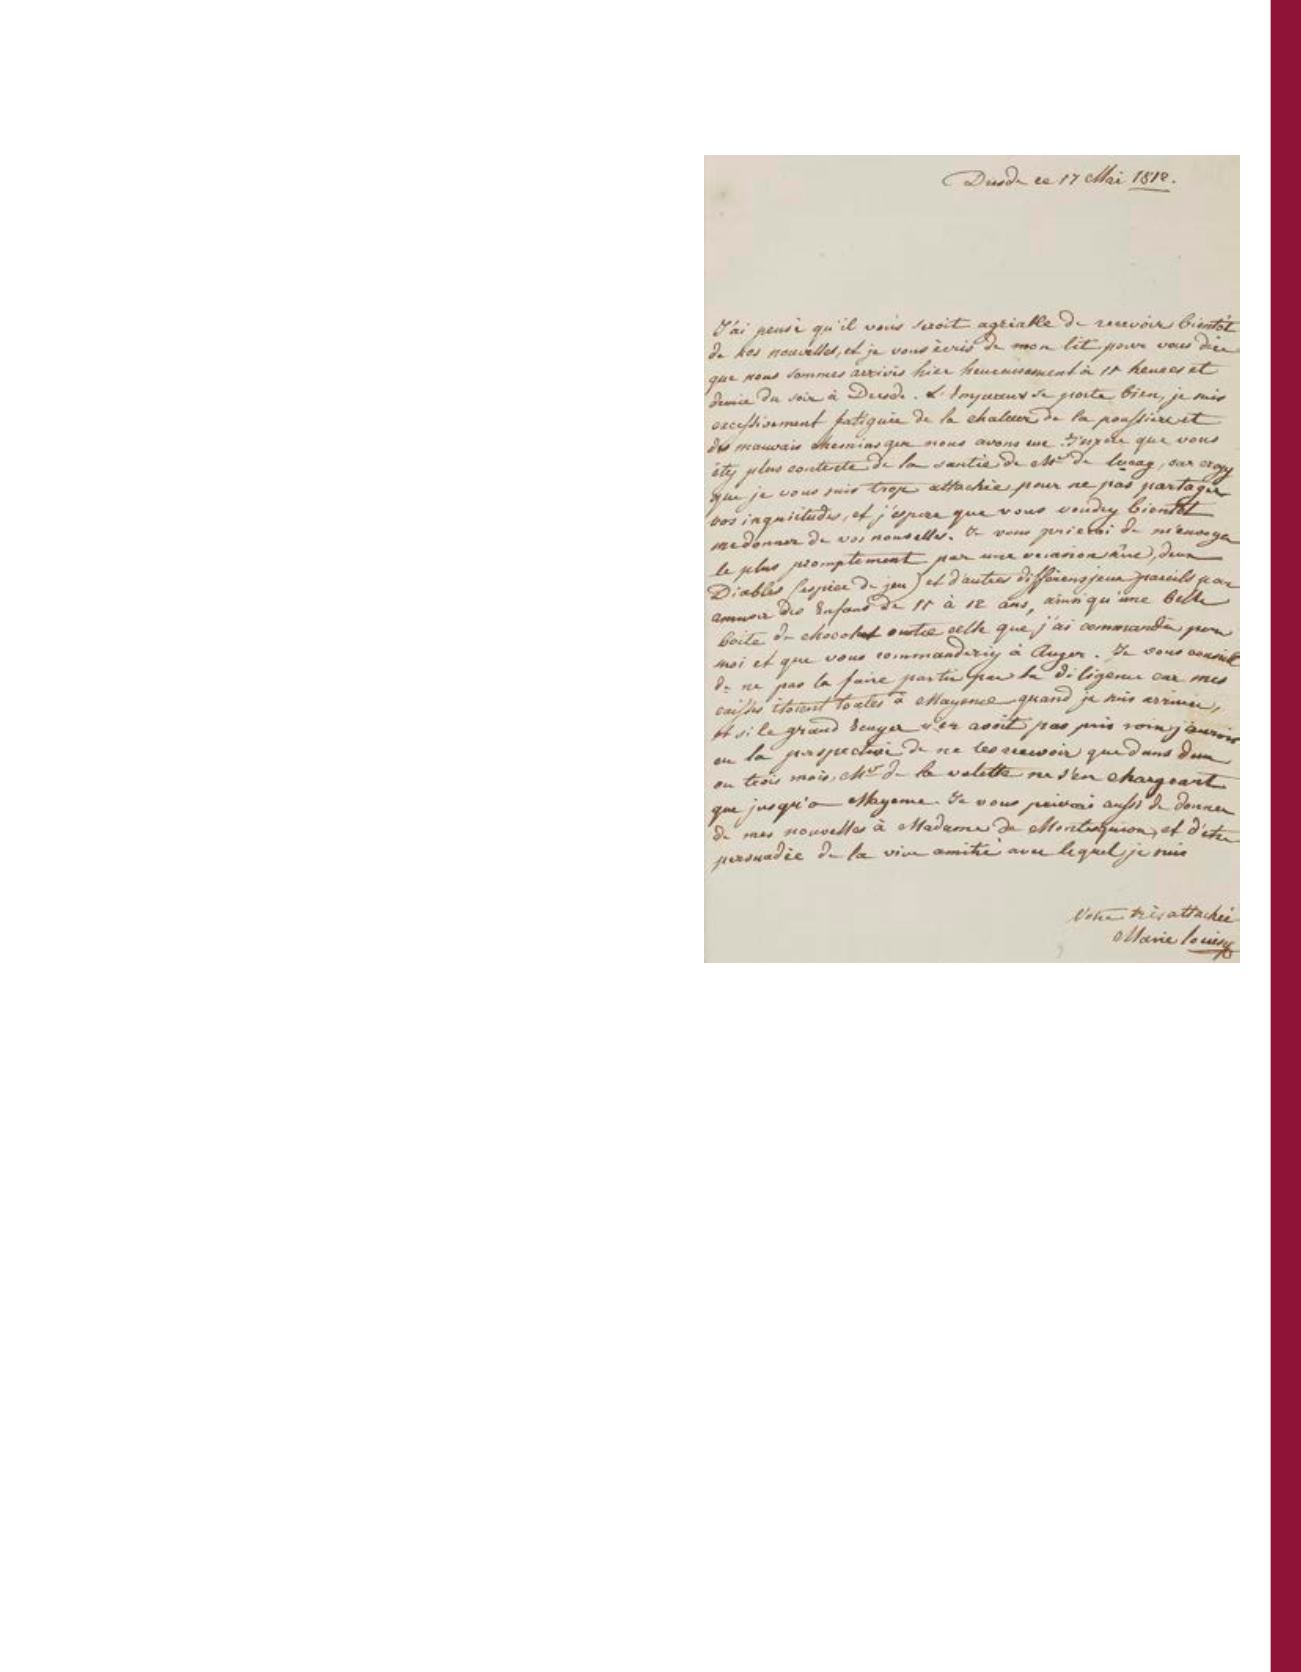 Dresde ce 17 Mai 1812.
J'ai pensé qu'il vous seroit agréable de recevoir bientôt
de nos nouvelles, et je vous écris de mon lit pour vous dire
que nous sommes arrivés hier heureusement à 11 heures et
demie du soir à Dresde. L'Empereur se porte bien, je suis
excessivement fatiguée de la chaleur de la poussière et
des mauvais chemins que nous avons eue. J'espere que vous
êtes plus contente de la santée de Mr de luçay, car croyez
que je vous suis trop attachée pour ne pas partager
vos inquiétudes, et j'espere que vous voudrez bientôt
me donner de vos nouvelles. Je vous prierai de m'envoyer
le plus promptement par une occasion sûre, deux
Diables (espèce de jeu) et d'autres différens jeux pareils pour
amuser des Enfans de 11 à 12 ans, ainsi qu'une belle
boite de chocolat outre celle que j'ai commandée pour
moi et que vous commanderez à Auger. Je vous conseille
de ne pas la faire partir par la diligence car mes
caisses étoient toutes à Mayence quand je suis arrivée,
et si le grand Ecuyer n'en avoit pas pris soin j'aurois
eu la perspective de ne les recevoir que dans deux
ou trois mois, Mr de la valette ne s'en chargeant
que jusqu'a Mayence. Je vous prierai aussi de donner
de mes nouvelles à Madame de Montesquiou, et d'être
persuadée de la vive amitié avec lequel je suis
Votre très attachée
Marie Louise